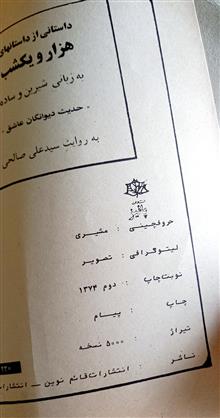 داستانی از داستانهای
هزار و یکشب
به زبانی شیرین و ساده
- حدیث دیوانگان عاشق -
به روایت سیدعلی صالحی
حروفچینی : مشیری
لیتوگرافی : تصویر
نوبت‌چاپ : دوم ۱۳۷۴
چاپ : پیام
تیراژ : ۵۰۰۰ نسخه
ناشر : انتشارات قائم نوین - انتشارات
۲۲۰